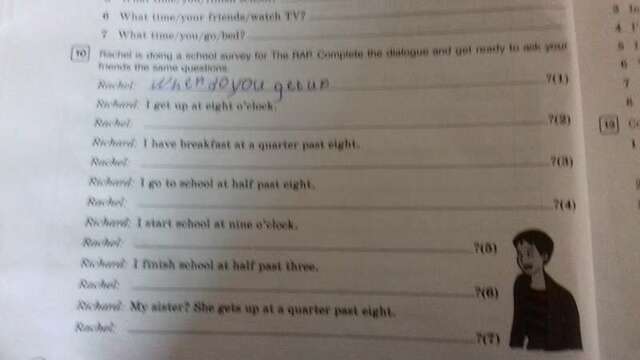 6 What time/your friends/watch TV?
7 What time/you/go/bed?
10 Rachel is doing a school survey for The RAP. Complete the dialogue and get ready to ask your
friends the same questions.
Rachel: when do you get up ?(1)
Richard: I get up at eight o'clock.
Rachel: ?(2)
Richard: I have breakfast at a quarter past eight.
Rachel: ?(3)
Richard: I go to school at half past eight.
Rachel: ?(4)
Richard: I start school at nine o'clock.
Rachel: ?(5)
Richard: I finish school at half past three.
Rachel: ?(6)
Richard: My sister? She gets up at a quarter past eight.
Rachel: ?(7)
3
4
5
6
7
8
1